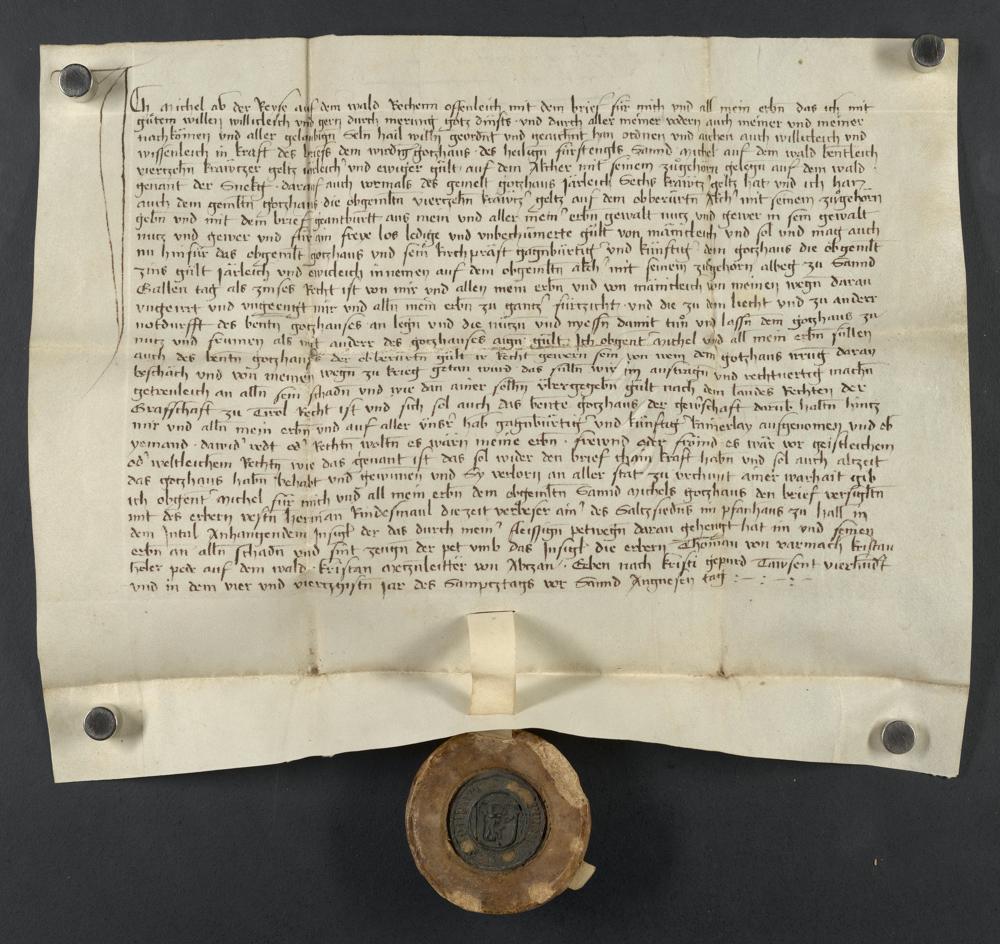 Ich Michel ab der Keyse auf dem wald Vechenn offenleich mit dem brief für mich vnd all mein erbn das ich mit
gütem willen willicleich vnd gern durch merung gotz dinsts vnd durch aller meiner vodern auch meiner vnd meiner
nachkömen vnd aller gelaubign Seln hail willn geordnt vnd geaicht han ordnen vnd auch willicleich vnd
wissenleich in kraft des briefs dem wirdig gotzhaus des heilign fürstengls Sannd Michel auf dem wald bentleich
viertzehn krawtzer geltz järleich vnd ewiger gült auf dem Akher mit seinem zugehörn gelegn auf dem wald
genant der darauf auch vormals des gemelt gotzhaus Järleich Sechs krawtz geltz hat vnd ich han
auch dem gemltn gotzhaus die obgemltn viertzehn krawtz geltz auf dem obberürtn Akh mit seinem zugehörn
gebn vnd mit dem brief geantbürtt aus mein vnd aller mein erbn gewalt nutz vnd gewer in sein gewalt
nutz vnd gewer vnd für ain freye los ledige vnd vnbechümerte gült von mäniclich vnd sol vnd mag auch
nu hinfür das obgemlt gotzhaus vnd sein kirchpräst gagnbürtig vnd künftig dem gotzhaus die obgemlt
zins gült Järleich vnd ewicleich innemen auf dem obgemltn akh mit seinem zugehörn albeg zu Sannd
Gallen tag als zinses Recht ist von mir vnd allen mein erbn vnd von mäniclich von meinen wegn daran
vngeirrt vnd vngeengt mir vnd alln mein erbn zu gantz fürzicht vnd die zu dem liecht vnd zu ander
notdurfft des bentn gotzhauses an legn vnd die nützn vnd nyessn damit tun vnd lassn dem gotzhaus zu
nutz vnd frumen als mit andere des gotzhauses aign gült Ich obgent Michel vnd all mein erbn süllen
auch des bentn gotzhaus der obberürtn gült ir Recht gewern sein von wem dem gotzhaus irrug daran
beschäch vnd von meinen wegn zu krieg getan wurd das sülln wir im austragn vnd rechtuertig machn
getreuleich an alln sein schadn vnd wie dan ainer solhn übergegebn gült nach dem landes Rechten der
Grafschaft zu Tirol Recht ist vnd sich sol auch das bente gotzhaus der gewschaft darub haltn hintz
mir vnd alln mein erbn vnd auf aller vnser hab gagnbürtig vnd künftig kainerlay ausgenomen vnd ob
yemand dawid redt od Rechtn woltn es wärn meine erbn freund oder frömd es wär vor geistleichem
od weltleichem Rechtn wie das genant ist das sol wider den brief chain kraft habn vnd sol auch altzeit
das gotzhaus habn behabt vnd gewunnen vnd Sy verlorn an aller stat zu vrchunt ainer warhait gib
ich obgent Michel für mich vnd all mein erbn dem obgemltn Sannd Michels gotzhaus den brief versigltn
mit des erbern vestn herman Kindesmaul die zeit verbeser ain des Saltzsiedns im pfanhaus zu hall im
dem Intal Anhangendem Insigl der das durch mein fleissign petwegn daran gehengt hat im vnd seinen
erbn an alln schadn vnd sint zeugn der pet vmb das Insigl die erbern Thoman von varmach kristan
pede auf dem wald kristan metznleitter von Abtzan Geben nach kristi gepurd Tawsent vierhudt
vnd in dem vier vnd viertzgistn Jar des Sampcztags vor Sannd Angnesen tag